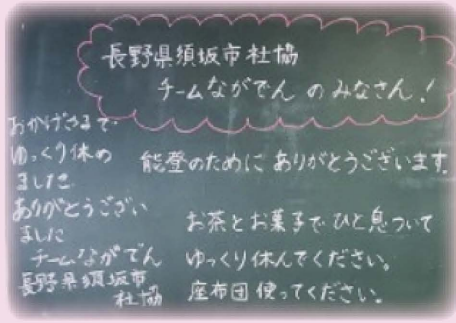 長野県須坂市社協
チームながでん のみなさん!
能登のために ありがとうございます。
お茶とお菓子で ひと息ついて
ゆっくり休んでください。
座布団使ってください。
おかげさまで
ゆっくり休め
ました
ありがとうござい
ました
チームながでん
長野県須坂市
社協